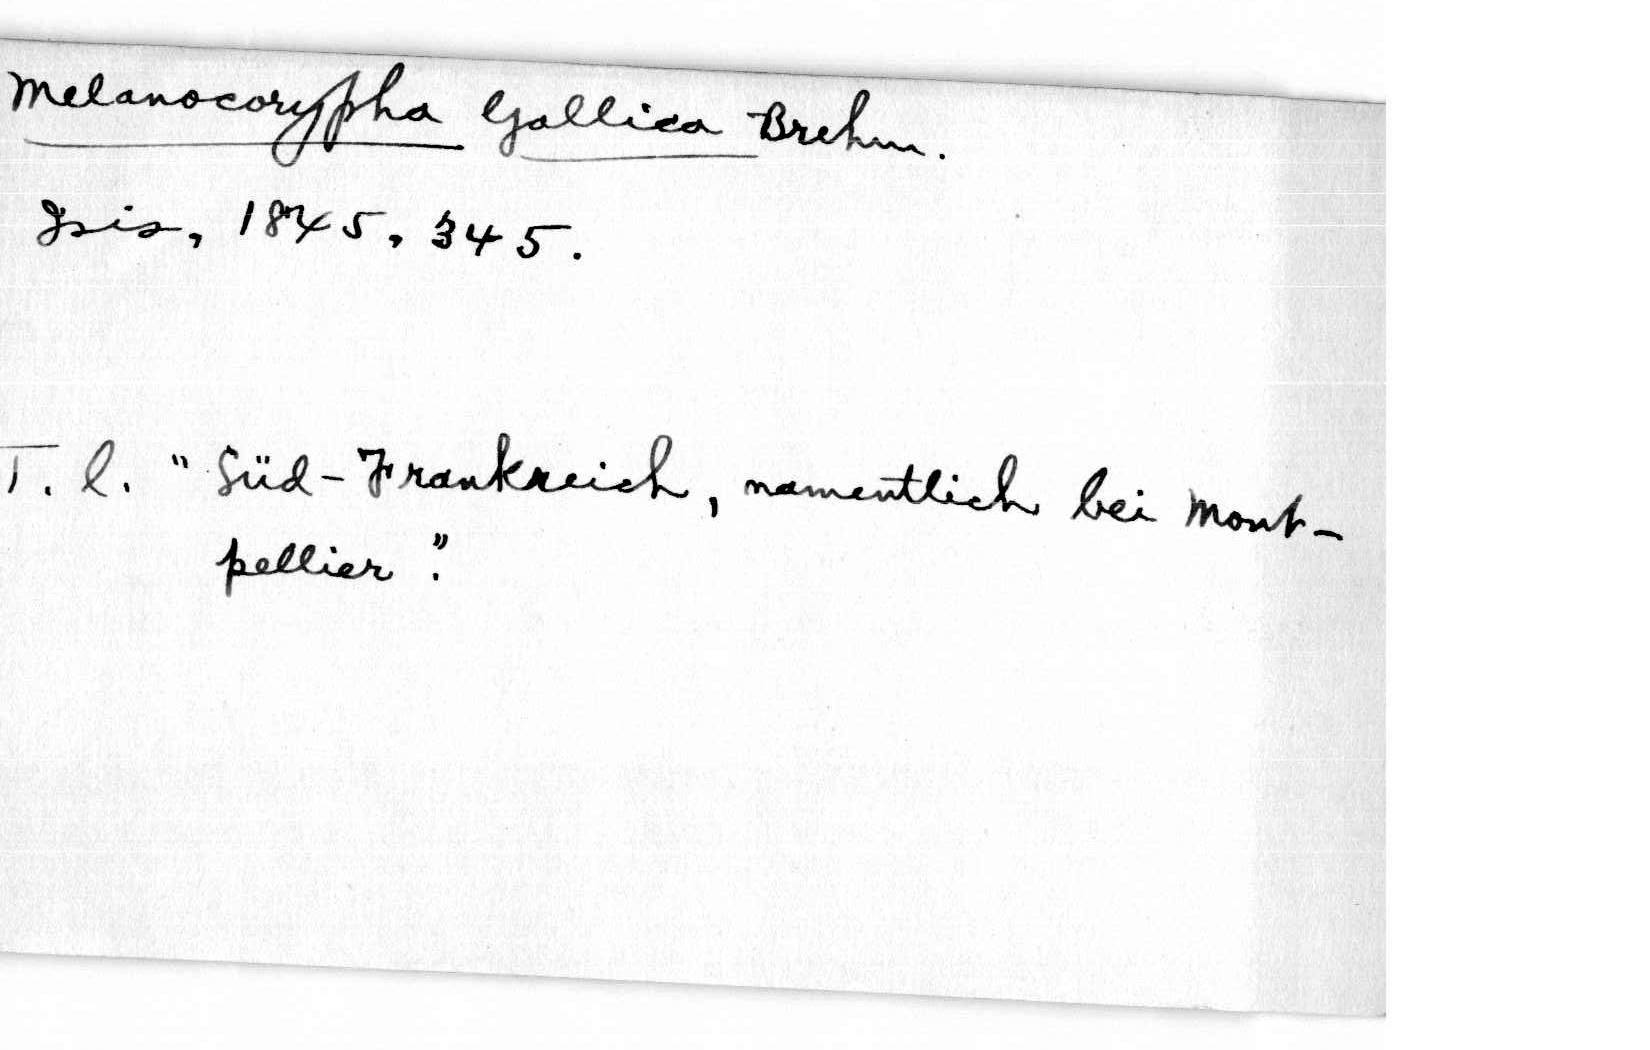 Melanocorypha Gallica Brehm.
Isis, 1845, 345.
T. l. "Süd-Frankreich, namentlich bei Mont-
pellier".